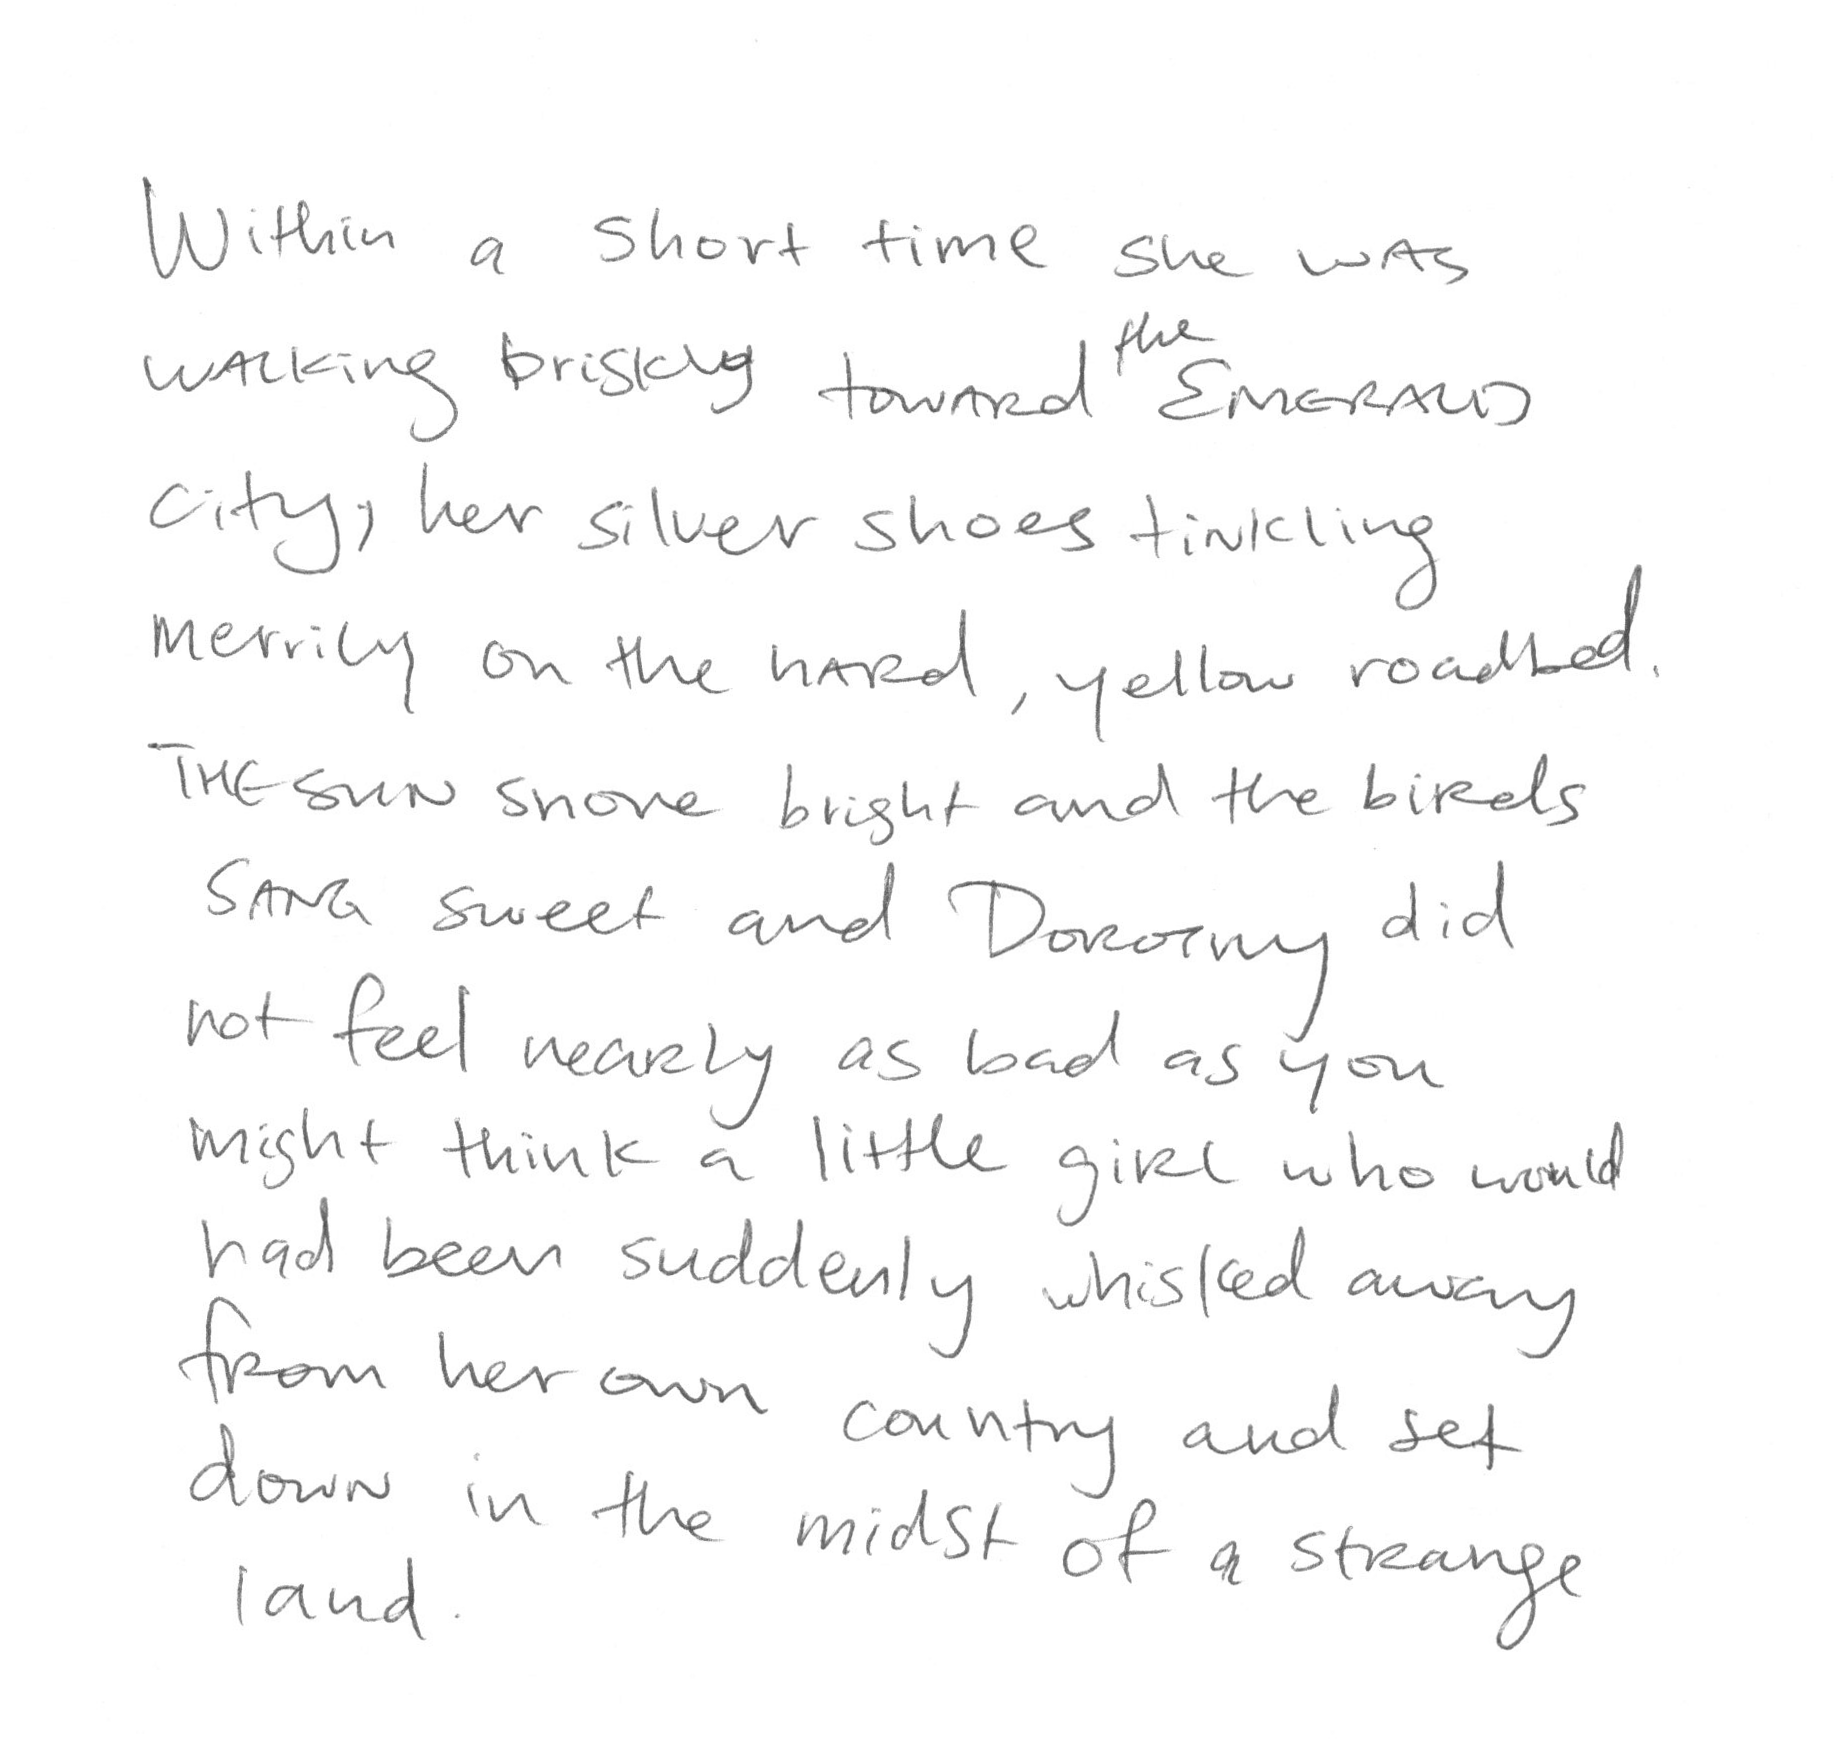 Within a short time she was
walking briskly toward the Emerald
City, her silver shoes tinkling
merrily on the hard, yellow roadbed.
The sun shone bright and the birds
sang sweet and Dorothy did
not feel nearly as bad as you
might think a little girl who would
had been suddenly whisked away
from her own country and set
down in the midst of a strange
land.